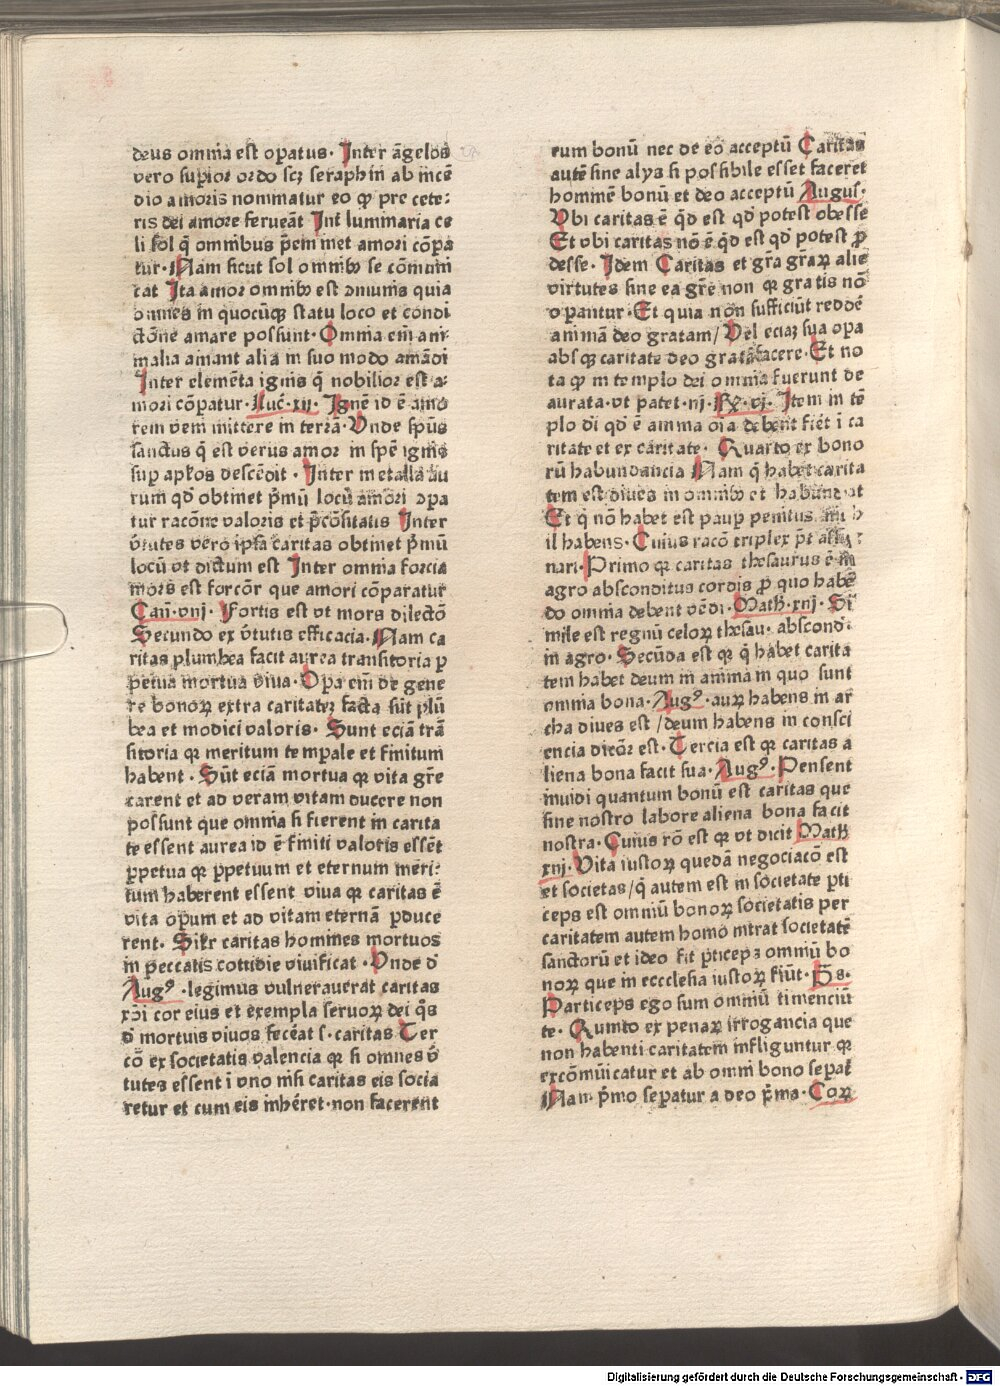 deus omnia est oꝑatus· Inter āgelos
vero supior ordo scꝫ seraphin ab incē
dio amoris nominatur eo ꝙ pre cete:
ris dei amore ferueāt Int luminaria ce
li sol q̄ omnibus p̄em inet amori cōpa
tur· Nam sicut sol omnibꝰ se cōmuni
cat Ita amor omnibꝰ est ↄmunis quia
omnes in quocūqꝫ statu loco et condi
ctōne amare possunt· Omnia em̄ ani
malia amant alia in suo modo amādi
Inter elemēta ignis q̄ nobilior est a:
mori cōpatur· Luc̄· xij· Ignē id ē amo
rem veni mittere in terrā· Vnde spūs
sanctus q̄ est verus amor in spē ignis
sup aplos descēdit · Inter metalla au
rum qd̄ obtinet p̄mū locū amōri ↄpa
tur racōne valoris et p̄cōsitatis Inter
v̄tutes vero ipsa caritas obtinet p̄mū
locū vt dictum est Inter omnia forcia
mors est forcōr que amori cōparatur
Can̄· viij· Fortis est vt mors dilectō
Secundo ex v̄tutis efficacia· Nam ca
ritas plumbea facit aurea transitoria ꝑ
petua mortua viua· Opa em̄ de gene
re bonoꝝ extra caritateꝫ facta sūt plū
bea et modici valoris· Sunt eciā trā
sitoria qꝛ meritum temꝑale et finitum
habent · Sūt eciā mortua qꝛ vita gr̄e
carent et ad veram vitam ducere non
possunt que omnia si fierent in carita
te essent aurea id ē finiti valoris essēt
ꝑpetua qꝛ ꝑpetuum et eternum meri:
tum haberent essent viua qꝛ caritas ē
vita oꝑum et ad vitam eternā ꝓduce
rent· Silꝛ caritas homines mortuos
in peccatis cottidie viuificat · Vnde d̄
Augꝰ ·legimus vulnerauerat caritas
xp̄i cor eius et exempla seruoꝝ dei q̄s
d̄ mortuis viuos fecēat s· caritas Ter
cō ex societatis valencia qꝛ si omnes v̄
tutes essent ī vno nisi caritas eis socia
retur et cum eis inhēret· non facerent
eum bonū nec de eo acceptū Caritas
autē sine alys si possibile esset faceret
hominē bonū et deo acceptū Augus·
Vbi caritas ē q̄d est qd̄ potest obesse
Et vbi caritas nō ē q̄d est qd̄ potest ꝓ
desse· Idem Caritas et gr̄a gr̄aꝝ alie
virtutes sine ea gr̄e non qꝛ gratis nō
oꝑantur· Et quia non sufficiūt reddē
animā deo gratam/ Vel eciaꝫ sua opa
absqꝫ caritate deo grata facere· Et no
ta ꝙ in templo dei omnia fuerunt de
aurata· vt patet· iij· Rꝝ· vj· Item in tē
plo di qd̄ ē anima oīa debent fiēt ī ca
ritate et ex caritate· Quarto ex bono
rū habundancia Nam q̄ habet carita
tem est diues in omnibꝰ et habundat
Et q̄ nō habet est paup penitus
il habens· Cuius racō triplex pt̄ assig
nari· Primo qꝛ caritas thesaurus ē in
agro absconditus cordis ꝓ quo habē
do omnia debent vēdi· Math· xiij· Si
mile est regnū celoꝝ thesau· abscond·
in agro· Secūda est qꝛ q̄ habet carita
tem habet deum in anima in quo sunt
omnia bona· Augꝰ· auꝝ habens in ar
cha diues est /deum habens in consci
encia diciōr est· Tercia est qꝛ caritas a
liena bona facit sua· Augꝰ· Pensent
inuidi quantum bonū est caritas que
sine nostro labore aliena bona facit
nostra· Cuius rō est qꝛ vt dicit Math
xiij· Vita iustoꝝ quedā negociacō est
et societas/q̄ autem est in societate ꝑti
ceps est omniū bonoꝝ societatis per
caritatem autem homo intrat societatē
sanctorū et ideo fit ꝑticeps omniū bo
noꝝ que in ecccclesia iustoꝝ fiūt· P̄s·
Particeps ego sum omniū timenciū
te· Quinto ex penaꝝ irrogancia que
non habenti caritatem infliguntur qꝛ
excōm̄icatur et ab omni bono sepat̄
Nam p̄mo seꝑatur a deo p̄ma· Coꝝ
Digitalisierung gefördert durch die Deutsche Forschungsgemeinschaft · DFG